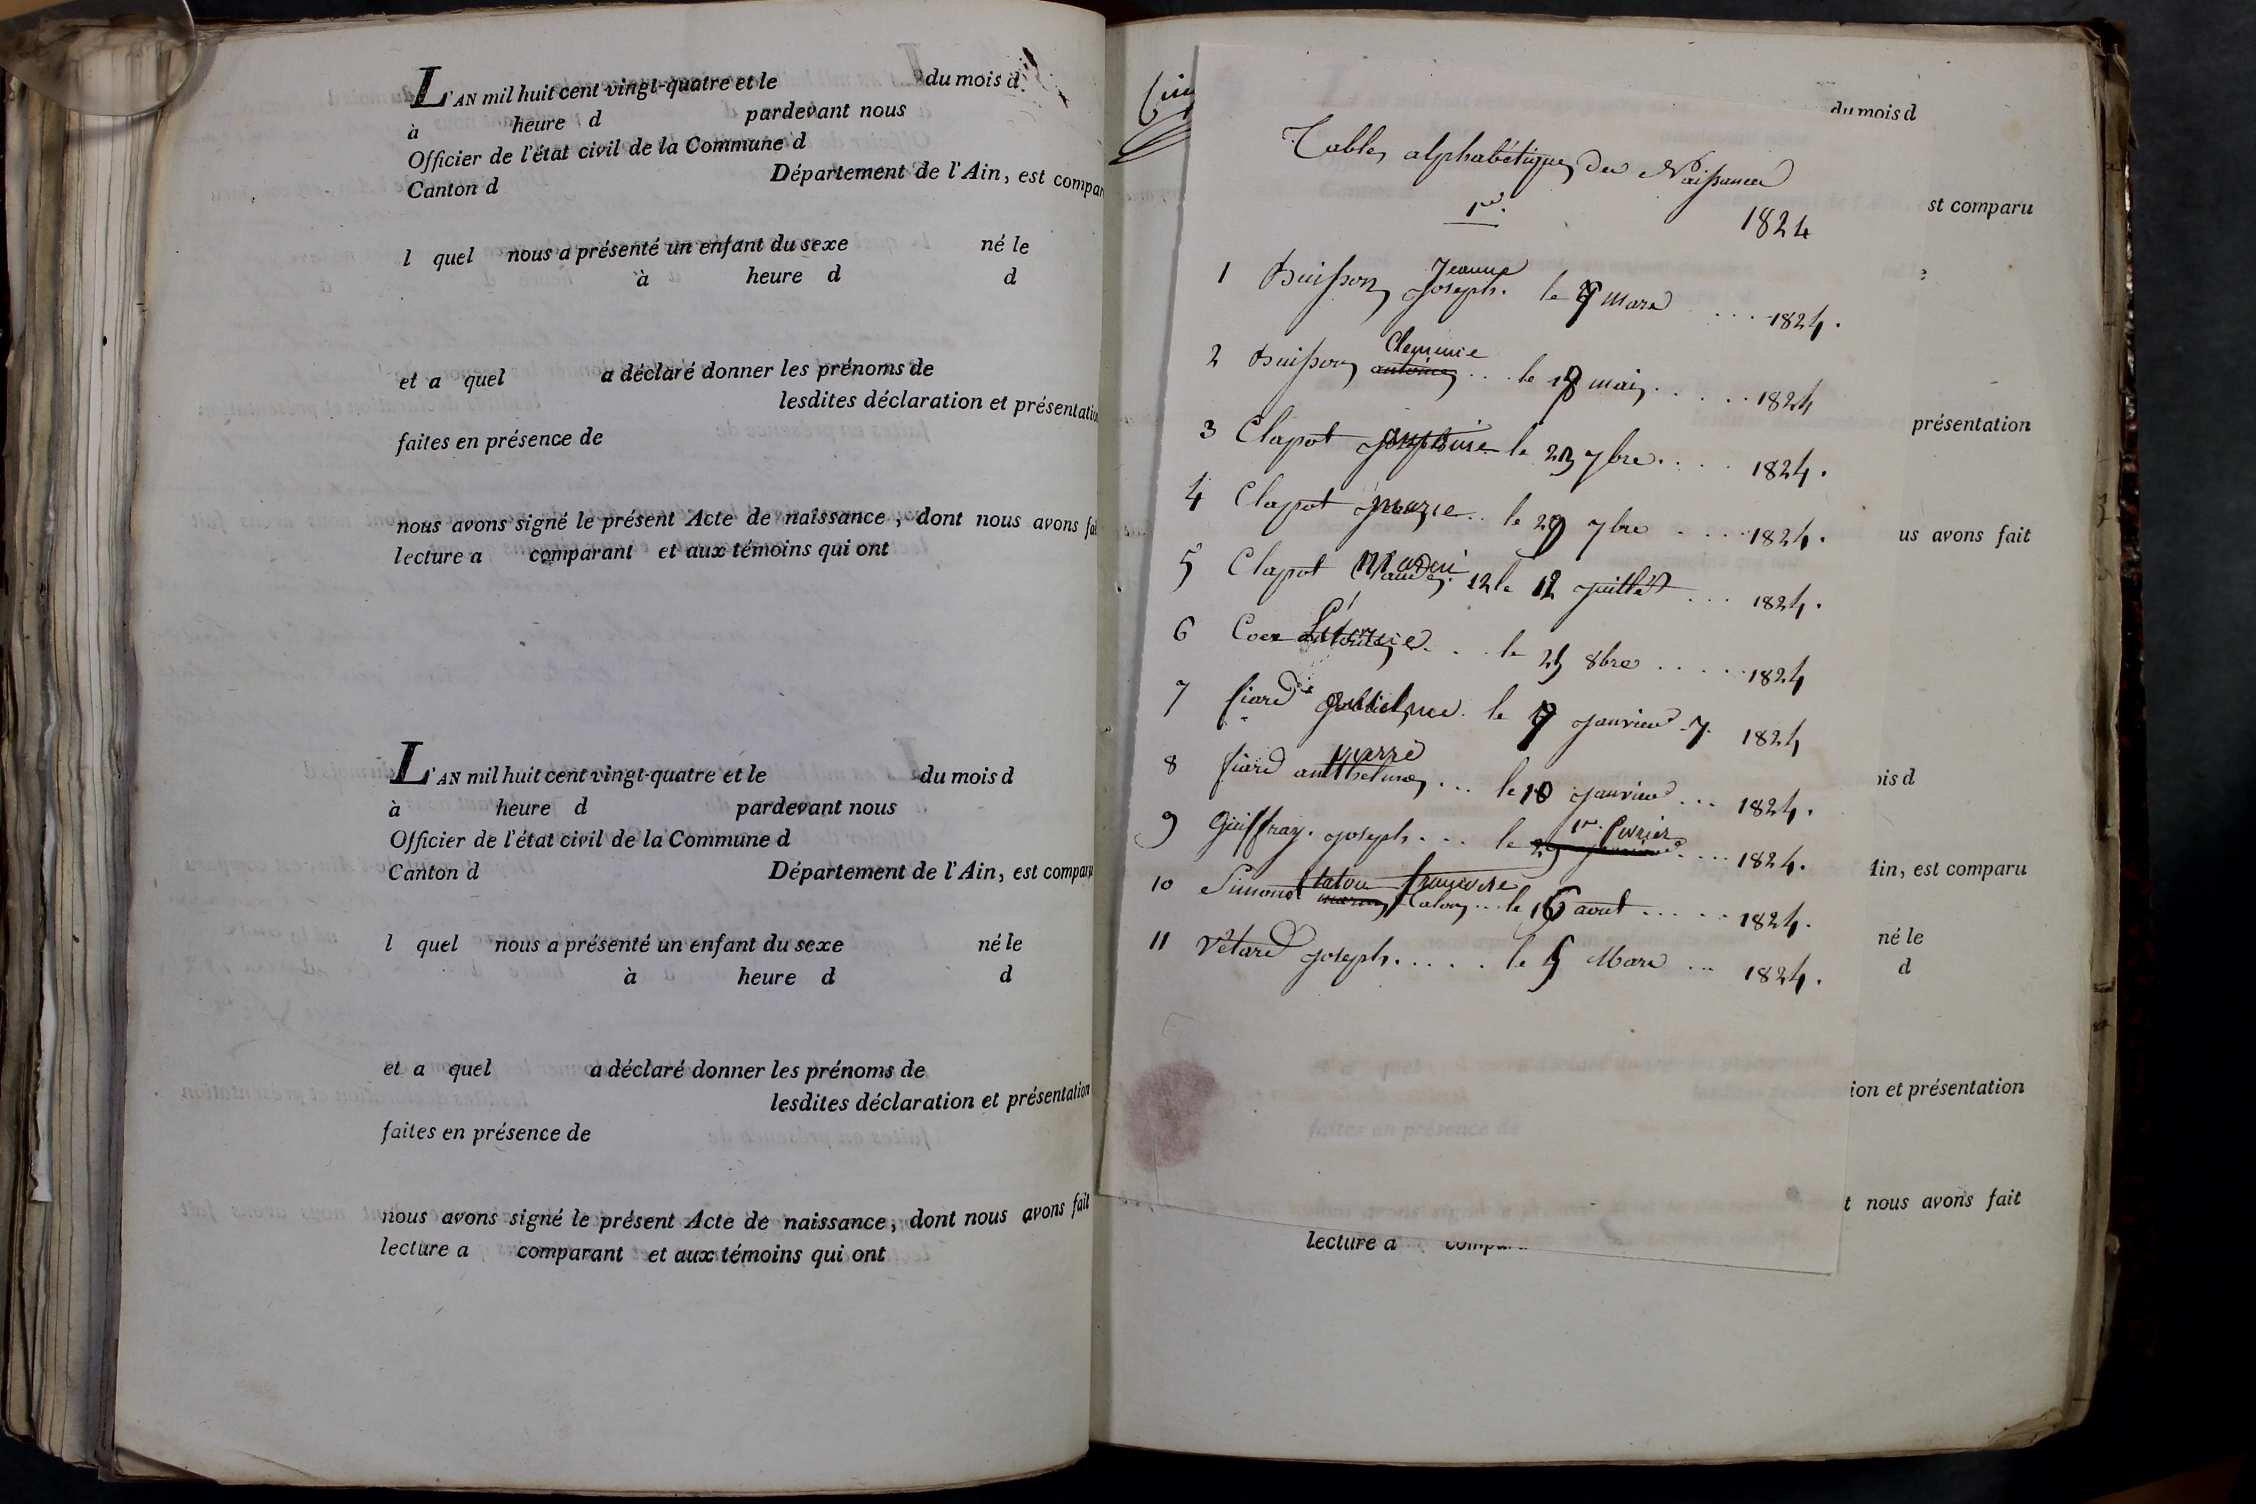 L'AN mil huit cent vingt-quatre et le du mois d
à heure d pardevant nous
Officier de l'état civil de la Commune d
Canton d Département de l'Ain, est compar
l quel nous a présenté un enfant du sexe né le
à heure d d
et a quel a déclaré donner les prénoms de
lesdites déclaration et présentati
faites en présence de
nous avons signé le présent Acte de naissance, dont nous avons fai
lecture a comparant et aux témoins qui ont
L'AN mil huit cent vingt-quatre et le du mois d
à heure d pardevant nous
Officier de l'état civil de la Commune d
Canton d Département de l'Ain, est comparu
l quel nous a présenté un enfant du sexe né le
à heure d d
et a quel a déclaré donner les prénoms de
lesdites déclaration et présentation
faites en présence de
nous avons signé le présent Acte de naissance, dont nous avons fait
lecture a comparant et aux témoins qui ont
du mois d
Tables alphabétiques des Naissances
1824
st comparu
1 Buisson Jeanne Joseph. le 9 mars ... 1824.
2 Buisson Clemmie antoine .. le 18 mai ... 1824
présentation
3 Clapot le 23 7bre .... 1824.
4 Clapot marie .. le 29 7bre .... 1824.
us avons fait
5 Clapot Claude 12 le 12 juillet ... 1824.
6 Coer .. le 25 8bre ..... 1824
7 fiard le 7 janvier 7. 1824
8 fiard pierre anthelme ... le 10 janvier ... 1824.
ois d
9 Guiffray. joseph ... le 1er. fevrier .... 1824.
Ain, est comparu
10 Simonet talon francoise talon ... le 16 aout ..... 1824.
né le
11 Vétard joseph ..... le 5 Mars ... 1824.
d
ion et présentation
faites en présence de
t nous avons fait
lecture a